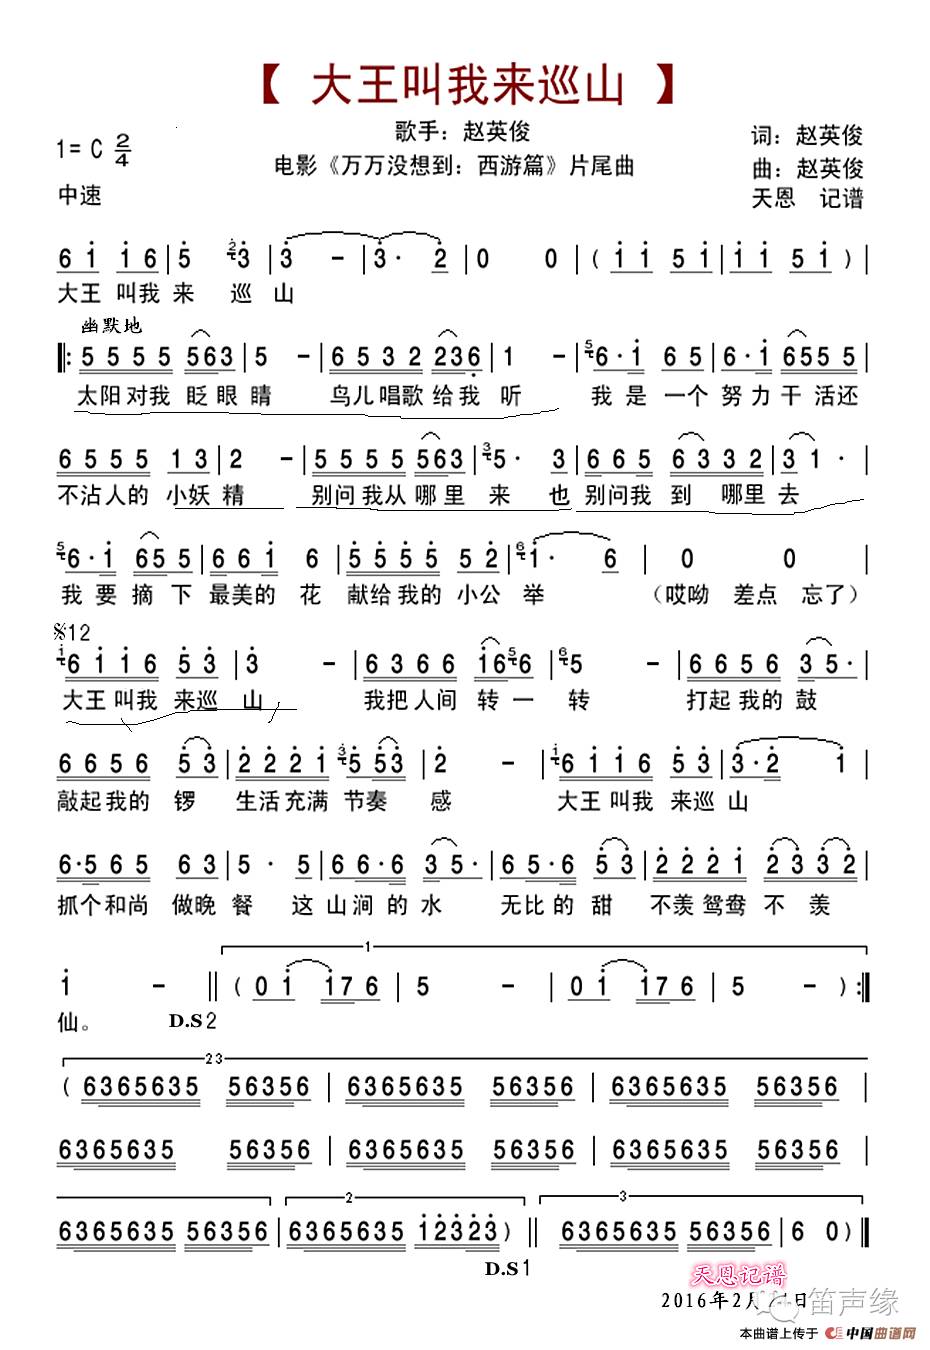 【 大王叫我来巡山 】
歌手：赵英俊
词：赵英俊
1=C 2/4
电影《万万没想到：西游篇》片尾曲
曲：赵英俊
中速
天恩 记谱
6 i i 6 | 5 2 3 | 3 - | 3· 2 | 0 0 | ( i i 5 i | i i 5 i ) |
大王 叫我 来 巡 山
幽默地
‖: 5 5 5 5 5 6 3 | 5 - | 6 5 3 2 2 3 6 | 1 - | 5 6· i 6 5 | 6· i 6 5 5 5 |
太阳对我 眨眼睛 鸟儿唱歌给我 听 我是一个努力干活还
6 5 5 5 1 3 | 2 - | 5 5 5 5 5 6 3 | 3 5· 3 | 6 6 5 6 3 3 2 | 3 1· |
不沾人的 小妖精 别问我从哪里 来 也 别问我 到 哪里去
5 6· i 6 5 5 | 6 6 i 6 | 5 5 5 5 5 2 | 6 i· 6 | 0 0 |
我要 摘下 最美的 花 献给我的 小公 举 （哎呦 差点 忘了）
𝄋12
i 6 i i 6 5 3 | 3 - | 6 3 6 6 i 6 5 6 | 6 5 - | 6 6 5 6 3 5· |
大王 叫我 来巡 山 我把人间 转一 转 打起我的鼓
6 6 5 6 5 3 | 2 2 2 i 3 5 5 3 | 2 - | i 6 i i 6 5 3 | 3· 2 i |
敲起我的 锣 生活充满 节奏 感 大王 叫我 来巡 山
6· 5 6 5 6 3 | 5 · 5 | 6 6· 6 3 5· | 6 5· 6 5 3 | 2 2 2 i 2 3 3 2 |
抓个和尚 做晚 餐 这 山涧的水 无比的甜 不羡鸳鸯 不 羡
1
i - ‖ ( 0 i i 7 6 | 5 - | 0 i i 7 6 | 5 - ) :‖
仙。 D.S 2
2 3
( 6 3 6 5 6 3 5 5 6 3 5 6 | 6 3 6 5 6 3 5 5 6 3 5 6 | 6 3 6 5 6 3 5 5 6 3 5 6 |
6 3 6 5 6 3 5 5 6 3 5 6 | 6 3 6 5 6 3 5 5 6 3 5 6 | 6 3 6 5 6 3 5 5 6 3 5 6 |
2 3
6 3 6 5 6 3 5 5 6 3 5 6 | 6 3 6 5 6 3 5 i 2 3 2 3 ) ‖ 6 3 6 5 6 3 5 5 6 3 5 6 | 6 0 ) ‖
D.S 1
天恩记谱
2016年2月 日
笛声缘
本曲谱上传于 中国曲谱网